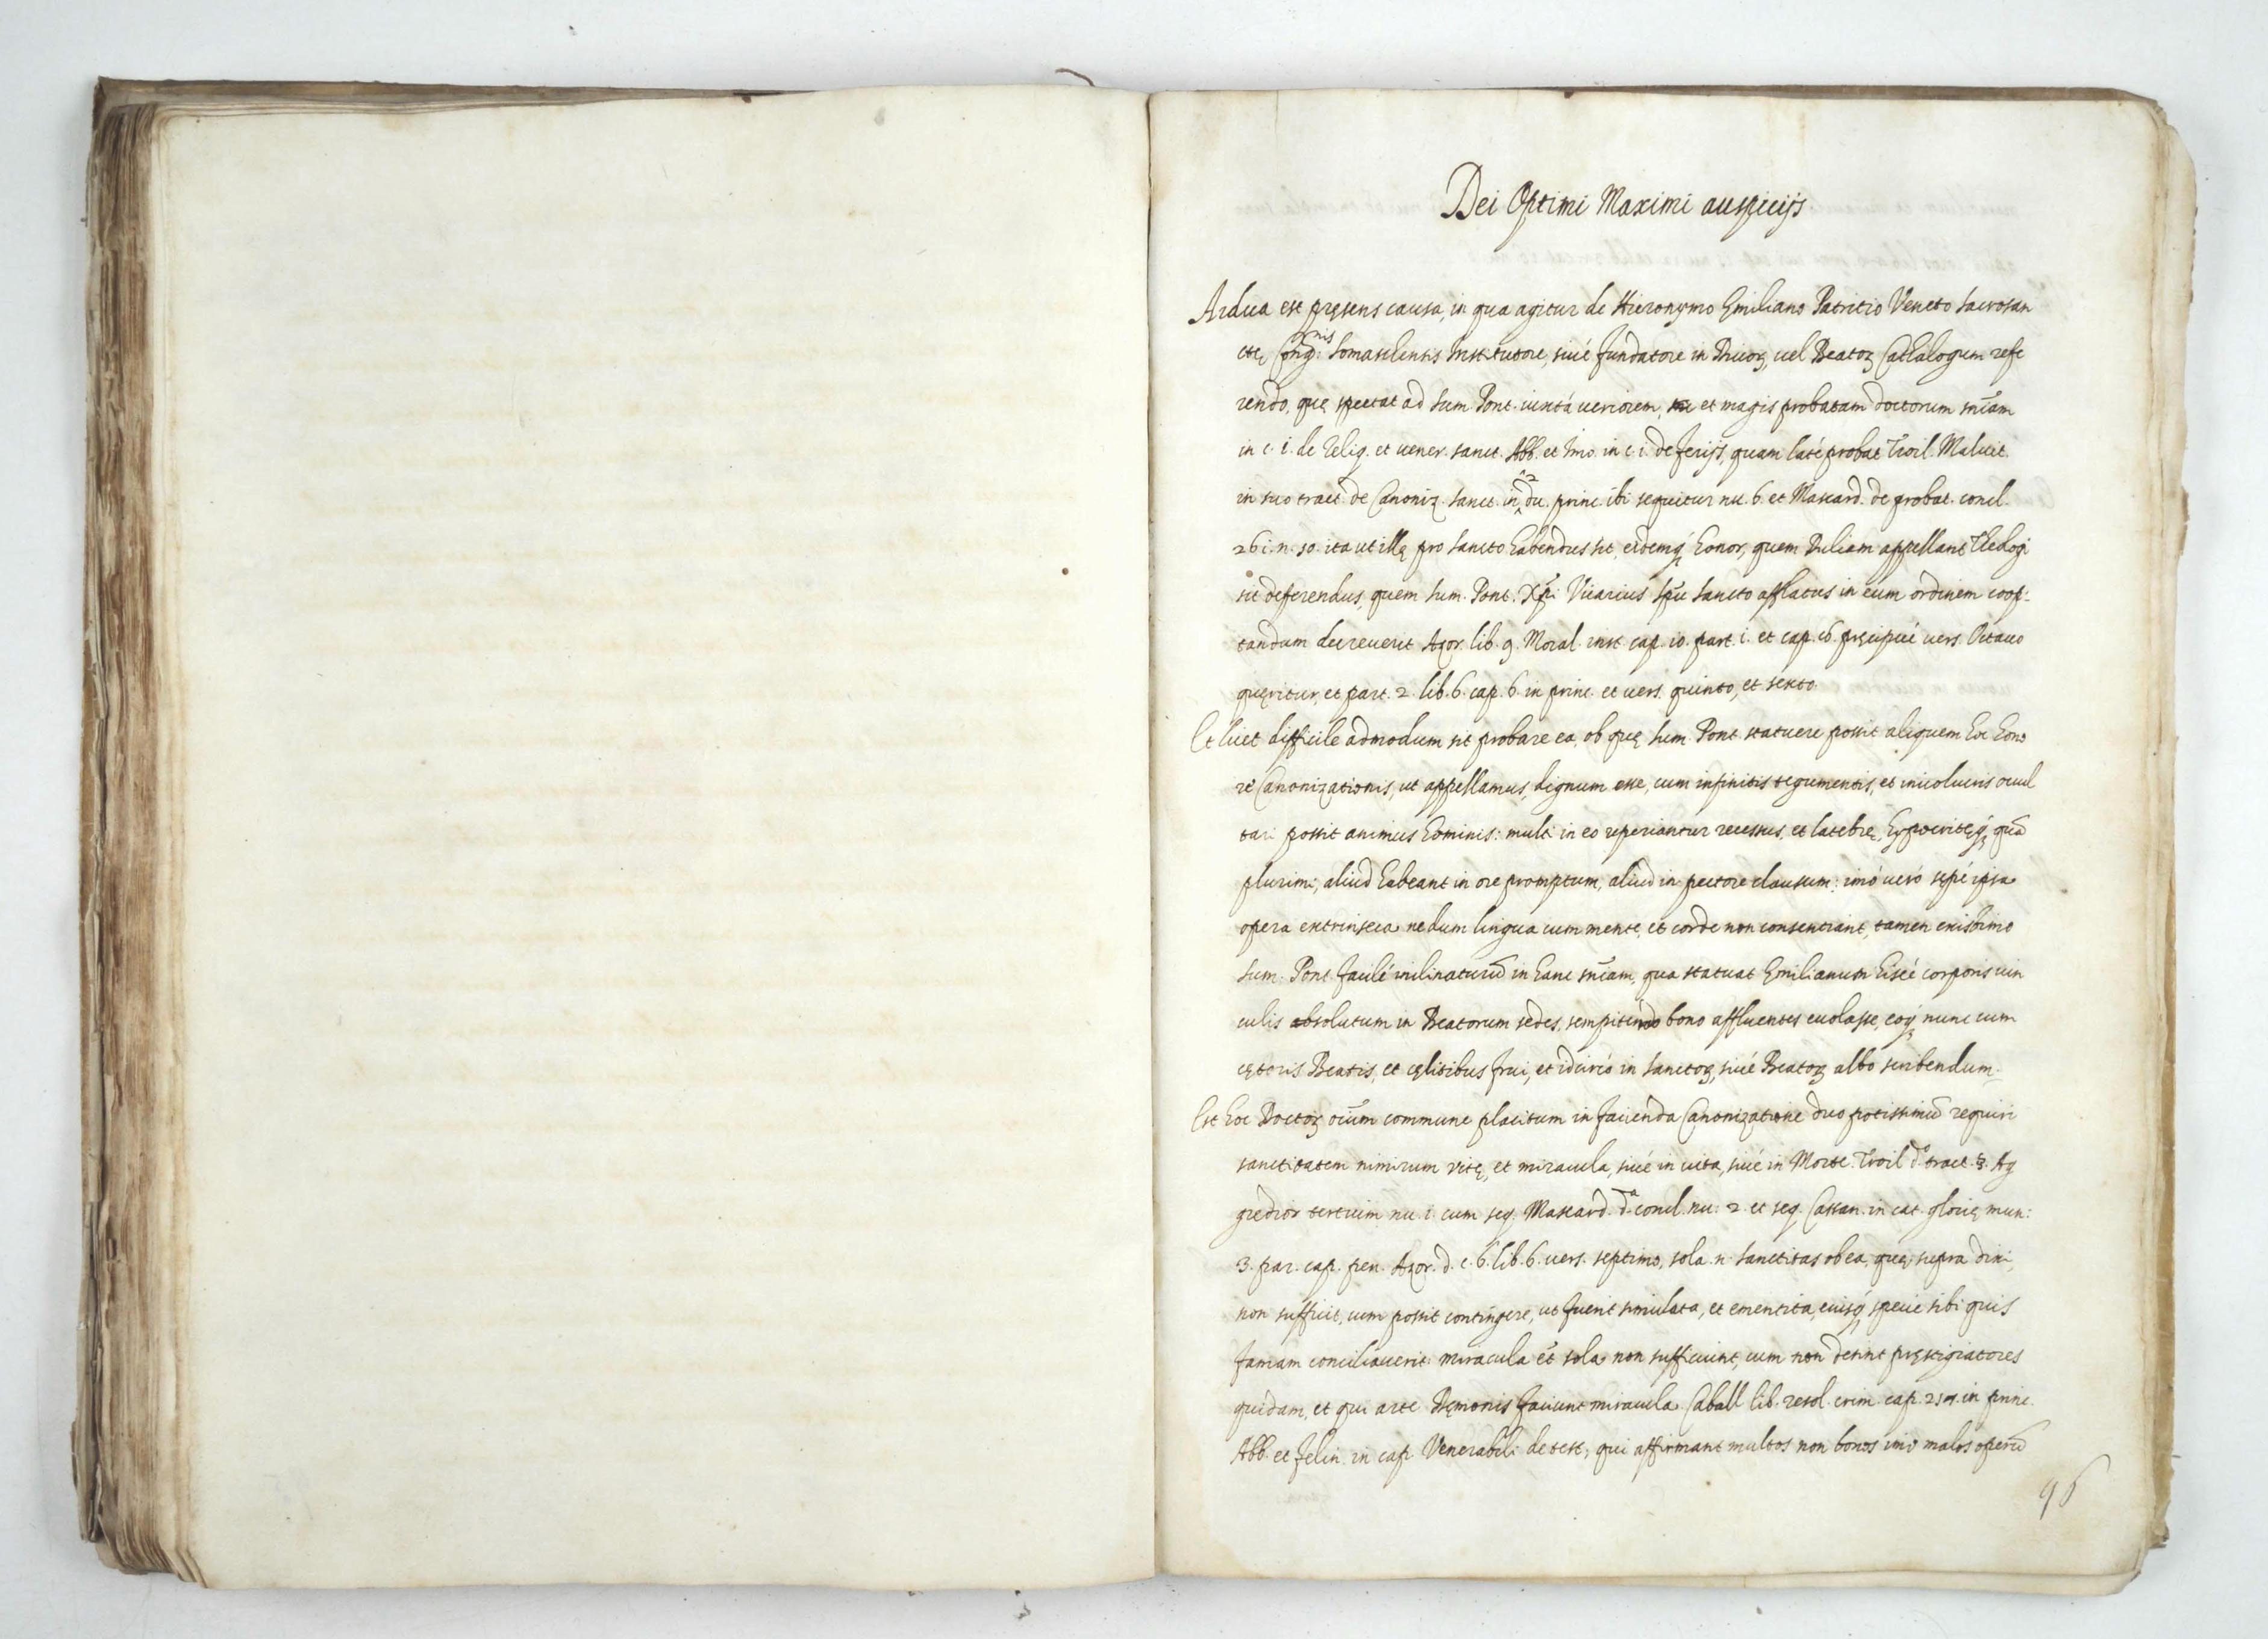 Dei Optimi Maximi auspicijs
Ardua est pręsens causa, in qua agitur de Hieronymo Emiliano Patritio Veneto sacrosan
ctę Cong.nis Somaschensis Institutore, siué fundatore in Diuoꝝ, uel Beatoꝝ Cathalogum refe
rendo, quę spectat ad Sum. Pont. iuxtá ueriorem, et magis probatam doctorum sn̄iam
in c. i. de Relig. et uener. sanct. Abb. et Imo. in c. i. de ferijs, quam laté probat Troil. Maluit.
in suo tract. de Canoniz. Sanct. in 2 du. princ. ibi sequitur nu. 6. et Mascard. de probat. concl.
261. n. 10. ita ut illę pro Sancto habendus sit, eidemq́; honor, quem Duliam appellant Theologi
sit deferendus, quem Sum. Pont. Xp̄i Vicarius Sp̄u Sancto afflatus in eum ordinem coop-
tandum decreuerit Azor. lib. 9. Moral. inst. cap. 10. part. i. et cap. 16. pręcipué uers. Octauo
quęritur, et part. 2. lib. 6. cap. 6. in princ. et uers. quinto, et sexto.
Et licet difficile admodum sit probare ea, ob quę Sum. Pont. statuere possit aliquem hoc hono
re Canonizationis, ut appellamus, dignum esse, cum infinitis tegumentis, et inuolucris occul
tari possit animus hominis: multi in eo reperiantur recessus, et latebrę, hypocritęq́; quā
plurimi, aliud habeant in ore promptum, aliud in pectore clausum: imó ueró sępé ipsa
opera extrinseca nedum lingua cum mente, et corde non consentiant, tamen existimo
Sum. Pont. facilé inclinaturū in hanc sn̄iam, qua statuat Emilianum hiscé corporis uin
culis absolutum in Beatorum sedes, sempiterno bono affluentes euolasse, eoq́; nunc cum
cęteris Beatis, et cęlitibus frui, et idcircó in Sanctoꝝ, siué Beatoꝝ albo scribendum.
Est hoc Doctoꝝ oīum commune placitum in facienda Canonizatione duo potissimū requiri
sanctitatem nimirum vitę, et miracula, siué in uita, siué in Morte. Troil. d.° tract. §. Ag
gredior tertium nu. i. cum seq. Mascard. d.a concl. nu: 2. et seq. Cassan. in cat. glorię mun:
3. par. cap. pen. Azor. d. c. 6. lib. 6. uers. septimo, sola .n. sanctitas ob ea, quę supra dixi,
non sufficit, cum possit contingere, ut fuerit simulata, et ementita, cuiusq́; specie sibi quis
famam conciliauerit: miracula ēt sola non sufficiunt, cum non desint pręstigiatores
quidam, et qui arte Dęmonis faciunt miracula Caball. lib. resol. crim. cap. 214. in princ.
Abb. et Felin. in cap. Venerabili de test, qui affirmant multos non bonos imo malos operū
96